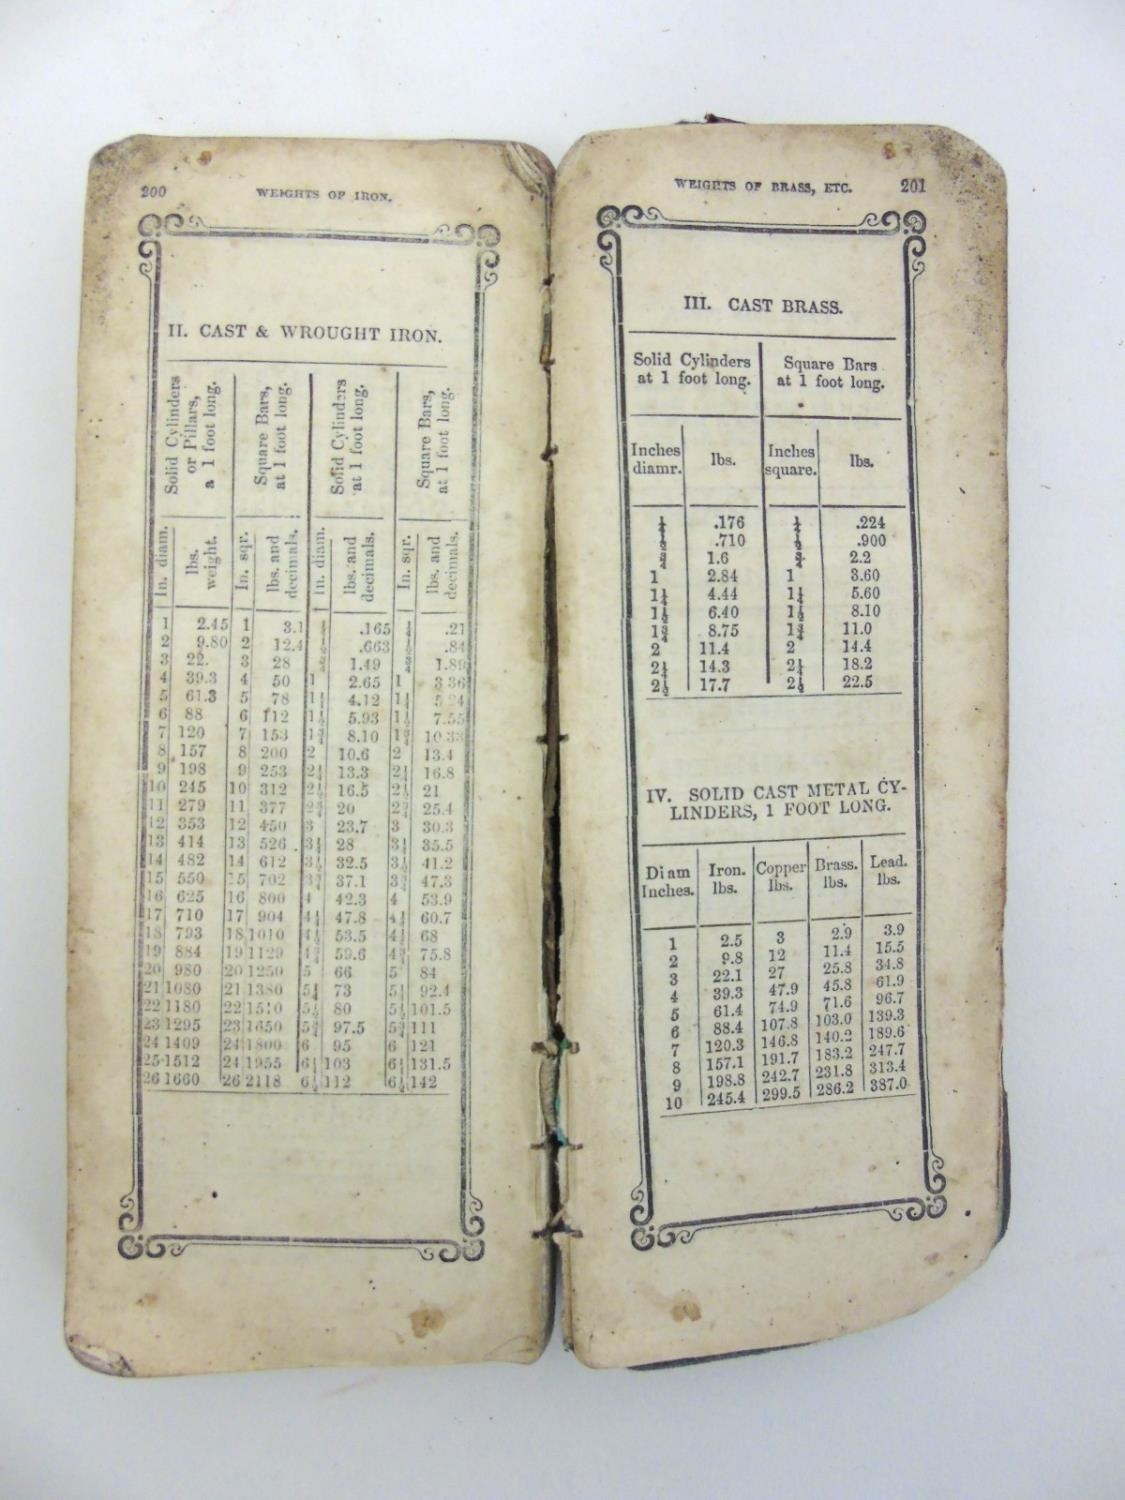 200 WEIGHTS OF IRON.
II. CAST & WROUGHT IRON.
Solid Cylinders or Pillars, a 1 foot long. Square Bars, at 1 foot long. Solid Cylinders at 1 foot long. Square Bars, at 1 foot long.
In. diam. lbs. weight. In. sqr. lbs. and decimals. In. diam. lbs. and decimals. In. sqr. lbs. and decimals.
1 2.45 1 3.1 ¼ .165 ¼ .21
2 9.80 2 12.4 ½ .663 ½ .84
3 22. 3 28 ¾ 1.49 ¾ 1.89
4 39.3 4 50 1 2.65 1 3 36
5 61.3 5 78 1¼ 4.12 1¼
6 88 6 112 1½ 5.93 1½ 7.55
7 120 7 153 1¾ 8.10 1¾ 10.33
8 157 8 200 2 10.6 2 13.4
9 198 9 253 2¼ 13.3 2¼ 16.8
10 245 10 312 2½ 16.5 2½ 21
11 279 11 377 2¾ 20 2¾ 25.4
12 353 12 450 3 23.7 3 30.3
13 414 13 526 3¼ 28 3¼ 35.5
14 482 14 612 3½ 32.5 3½ 41.2
15 550 15 702 3¾ 37.1 3¾ 47.3
16 625 16 800 4 42.3 4 53.9
17 710 17 904 4¼ 47.8 4¼ 60.7
18 793 18 1010 4½ 53.5 4½ 68
19 884 19 1129 4¾ 59.6 4¾ 75.8
20 980 20 1250 5 66 5 84
21 1080 21 1380 5¼ 73 5¼ 92.4
22 1180 22 1510 5½ 80 5½ 101.5
23 1295 23 1650 5¾ 97.5 5¾ 111
24 1409 24 1800 6 95 6 121
25 1512 24 1955 6¼ 103 6¼ 131.5
26 1660 26 2118 6½ 112 6½ 142
WEIGHTS OF BRASS, ETC. 201
III. CAST BRASS.
Solid Cylinders at 1 foot long. Square Bars at 1 foot long.
Inches diamr. lbs. Inches square. lbs.
¼ .176 ¼ .224
½ .710 ½ .900
¾ 1.6 ¾ 2.2
1 2.84 1 3.60
1¼ 4.44 1¼ 5.60
1½ 6.40 1½ 8.10
1¾ 8.75 1¾ 11.0
2 11.4 2 14.4
2¼ 14.3 2¼ 18.2
2½ 17.7 2½ 22.5
IV. SOLID CAST METAL CY-
LINDERS, 1 FOOT LONG.
Diam Inches. Iron. lbs. Copper lbs. Brass. lbs. Lead. lbs.
1 2.5 3 2.9 3.9
2 9.8 12 11.4 15.5
3 22.1 27 25.8 34.8
4 39.3 47.9 45.8 61.9
5 61.4 74.9 71.6 96.7
6 88.4 107.8 103.0 139.3
7 120.3 146.8 140.2 189.6
8 157.1 191.7 183.2 247.7
9 198.8 242.7 231.8 313.4
10 245.4 299.5 286.2 387.0